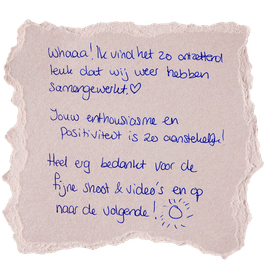 Whaaa! Ik vind het zo ontzettend
leuk dat wij weer hebben
samengewerkt.♡
Jouw enthousiasme en
Positiviteit is zo aanstekelijk!
Heel erg bedankt voor de
fijne shoot & video's en op
naar de volgende!